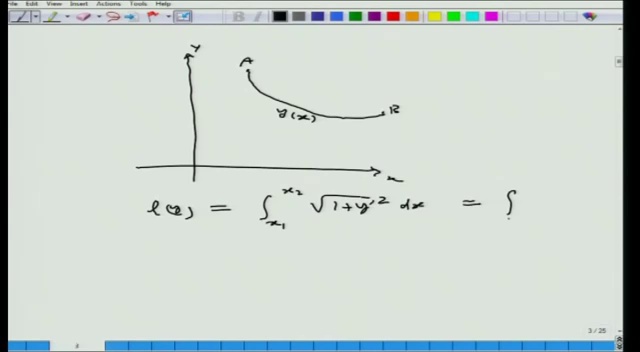 File Edit View Insert Actions Tools Help
B
y
A
B
y(x)
x
l(y) = ∫_{x_1}^{x_2} √(1+y'^2) dx = ∫
3 / 25